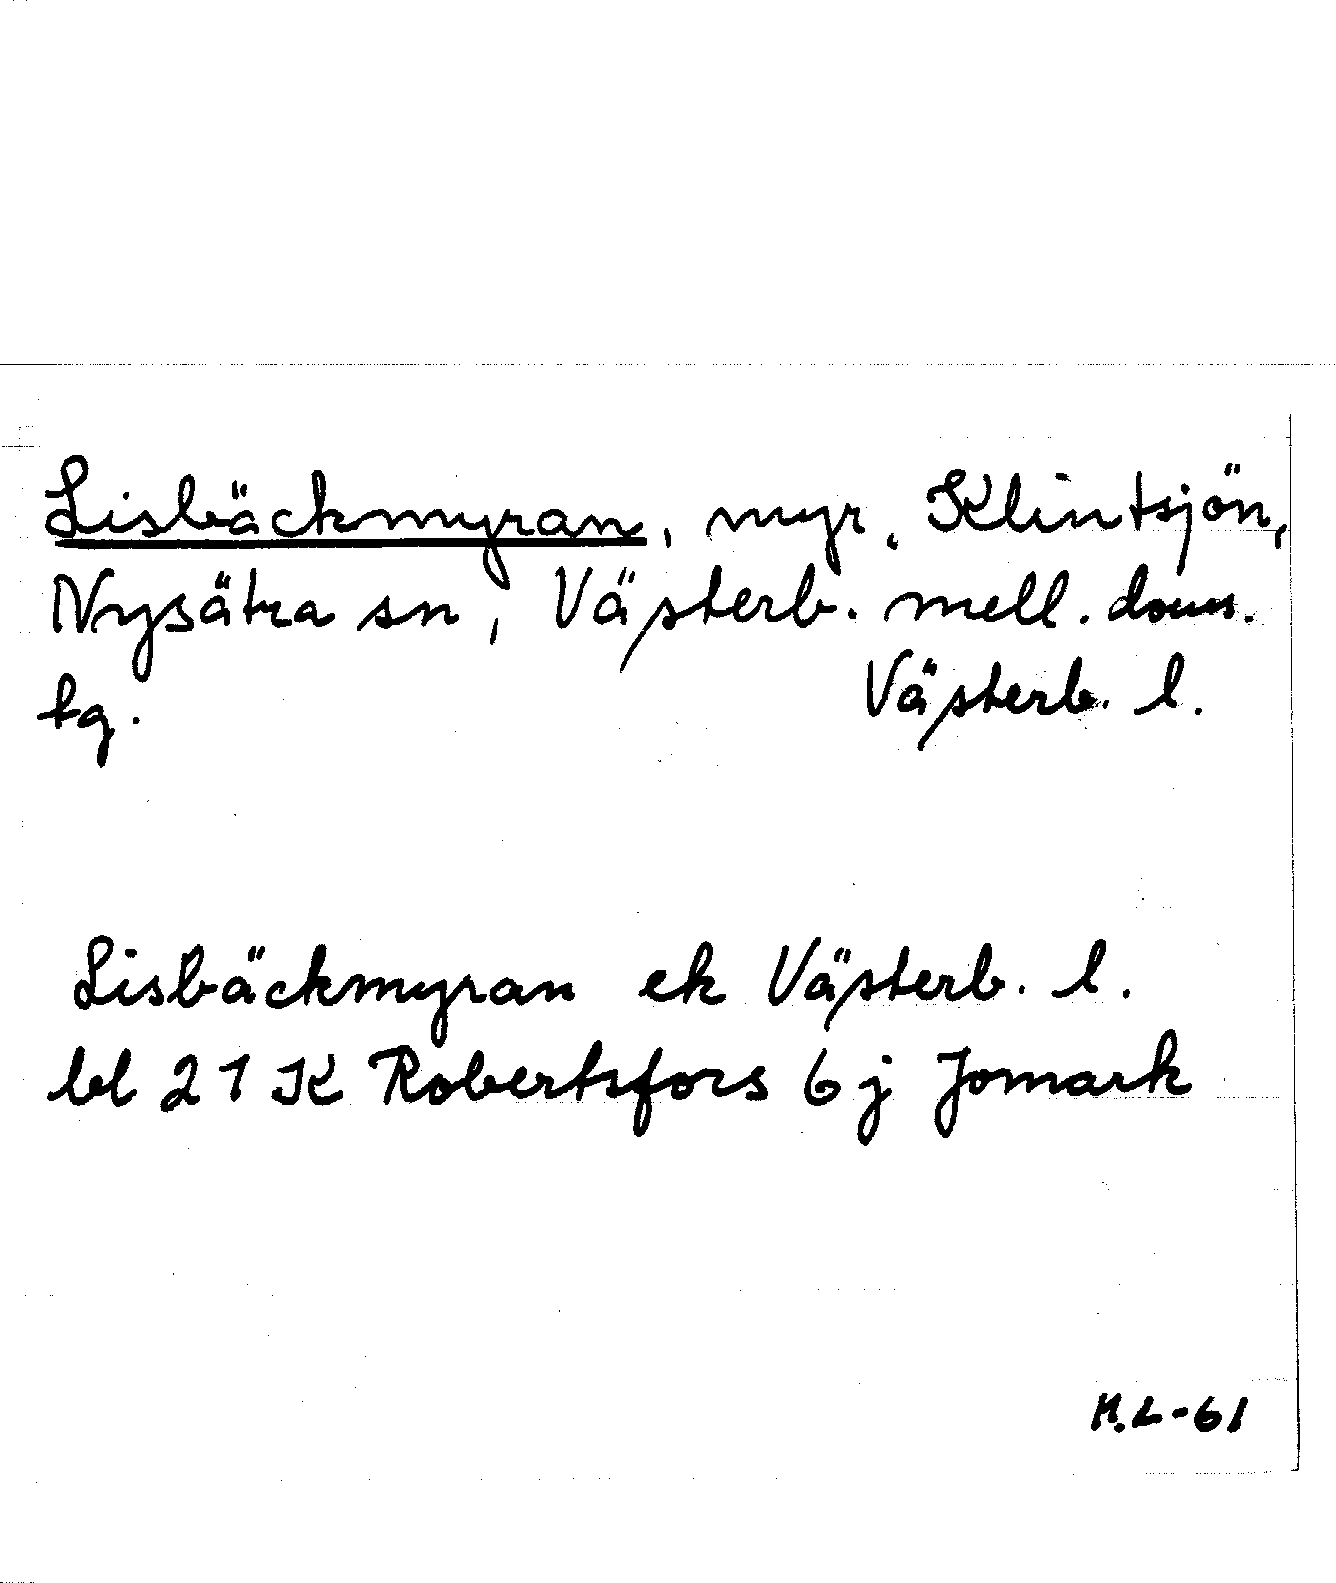 Lisbäckmyran, myr, Klintsjön,
Nysätra sn, Västerb. mell. doms.
tg. Västerb. l.
Lisbäckmyran ek Västerb. l.
bl 21 K Robertsfors 6 j Jomark
H.L-61